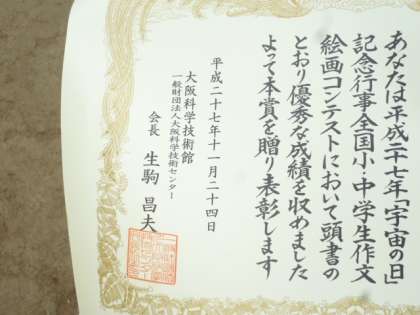 あなたは平成二十七年「宇宙の日」
記念行事全国小・中学生作文
絵画コンテストにおいて頭書の
とおり優秀な成績を収めました
よって本賞を贈り表彰します
平成二十七年十一月二十四日
大阪科学技術館
一般財団法人大阪科学技術センター
会長 生駒昌夫